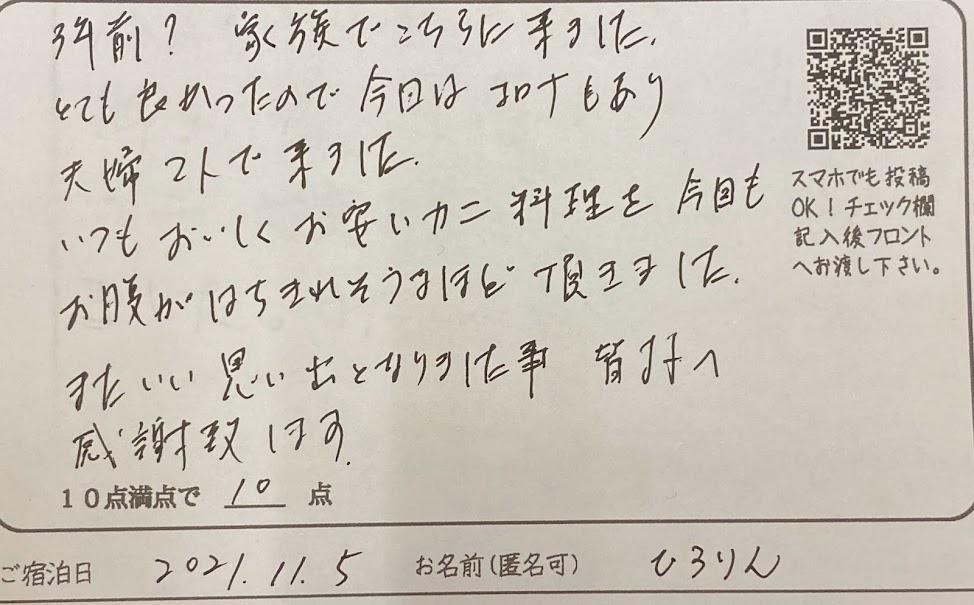 3年前? 家族でこちらに来ました。
とても良かったので今回はコロナもあり
夫婦2人で来ました。
いつもおいしくお安いカニ料理を今回も
お腹がはちきれそうなほど頂きました。
またいい思い出となりました事 皆様へ
感謝致します。
10点満点で 10 点
スマホでも投稿
OK!チェック欄
記入後フロント
へお渡し下さい。
ご宿泊日 2021.11.5 お名前(匿名可) ひろりん